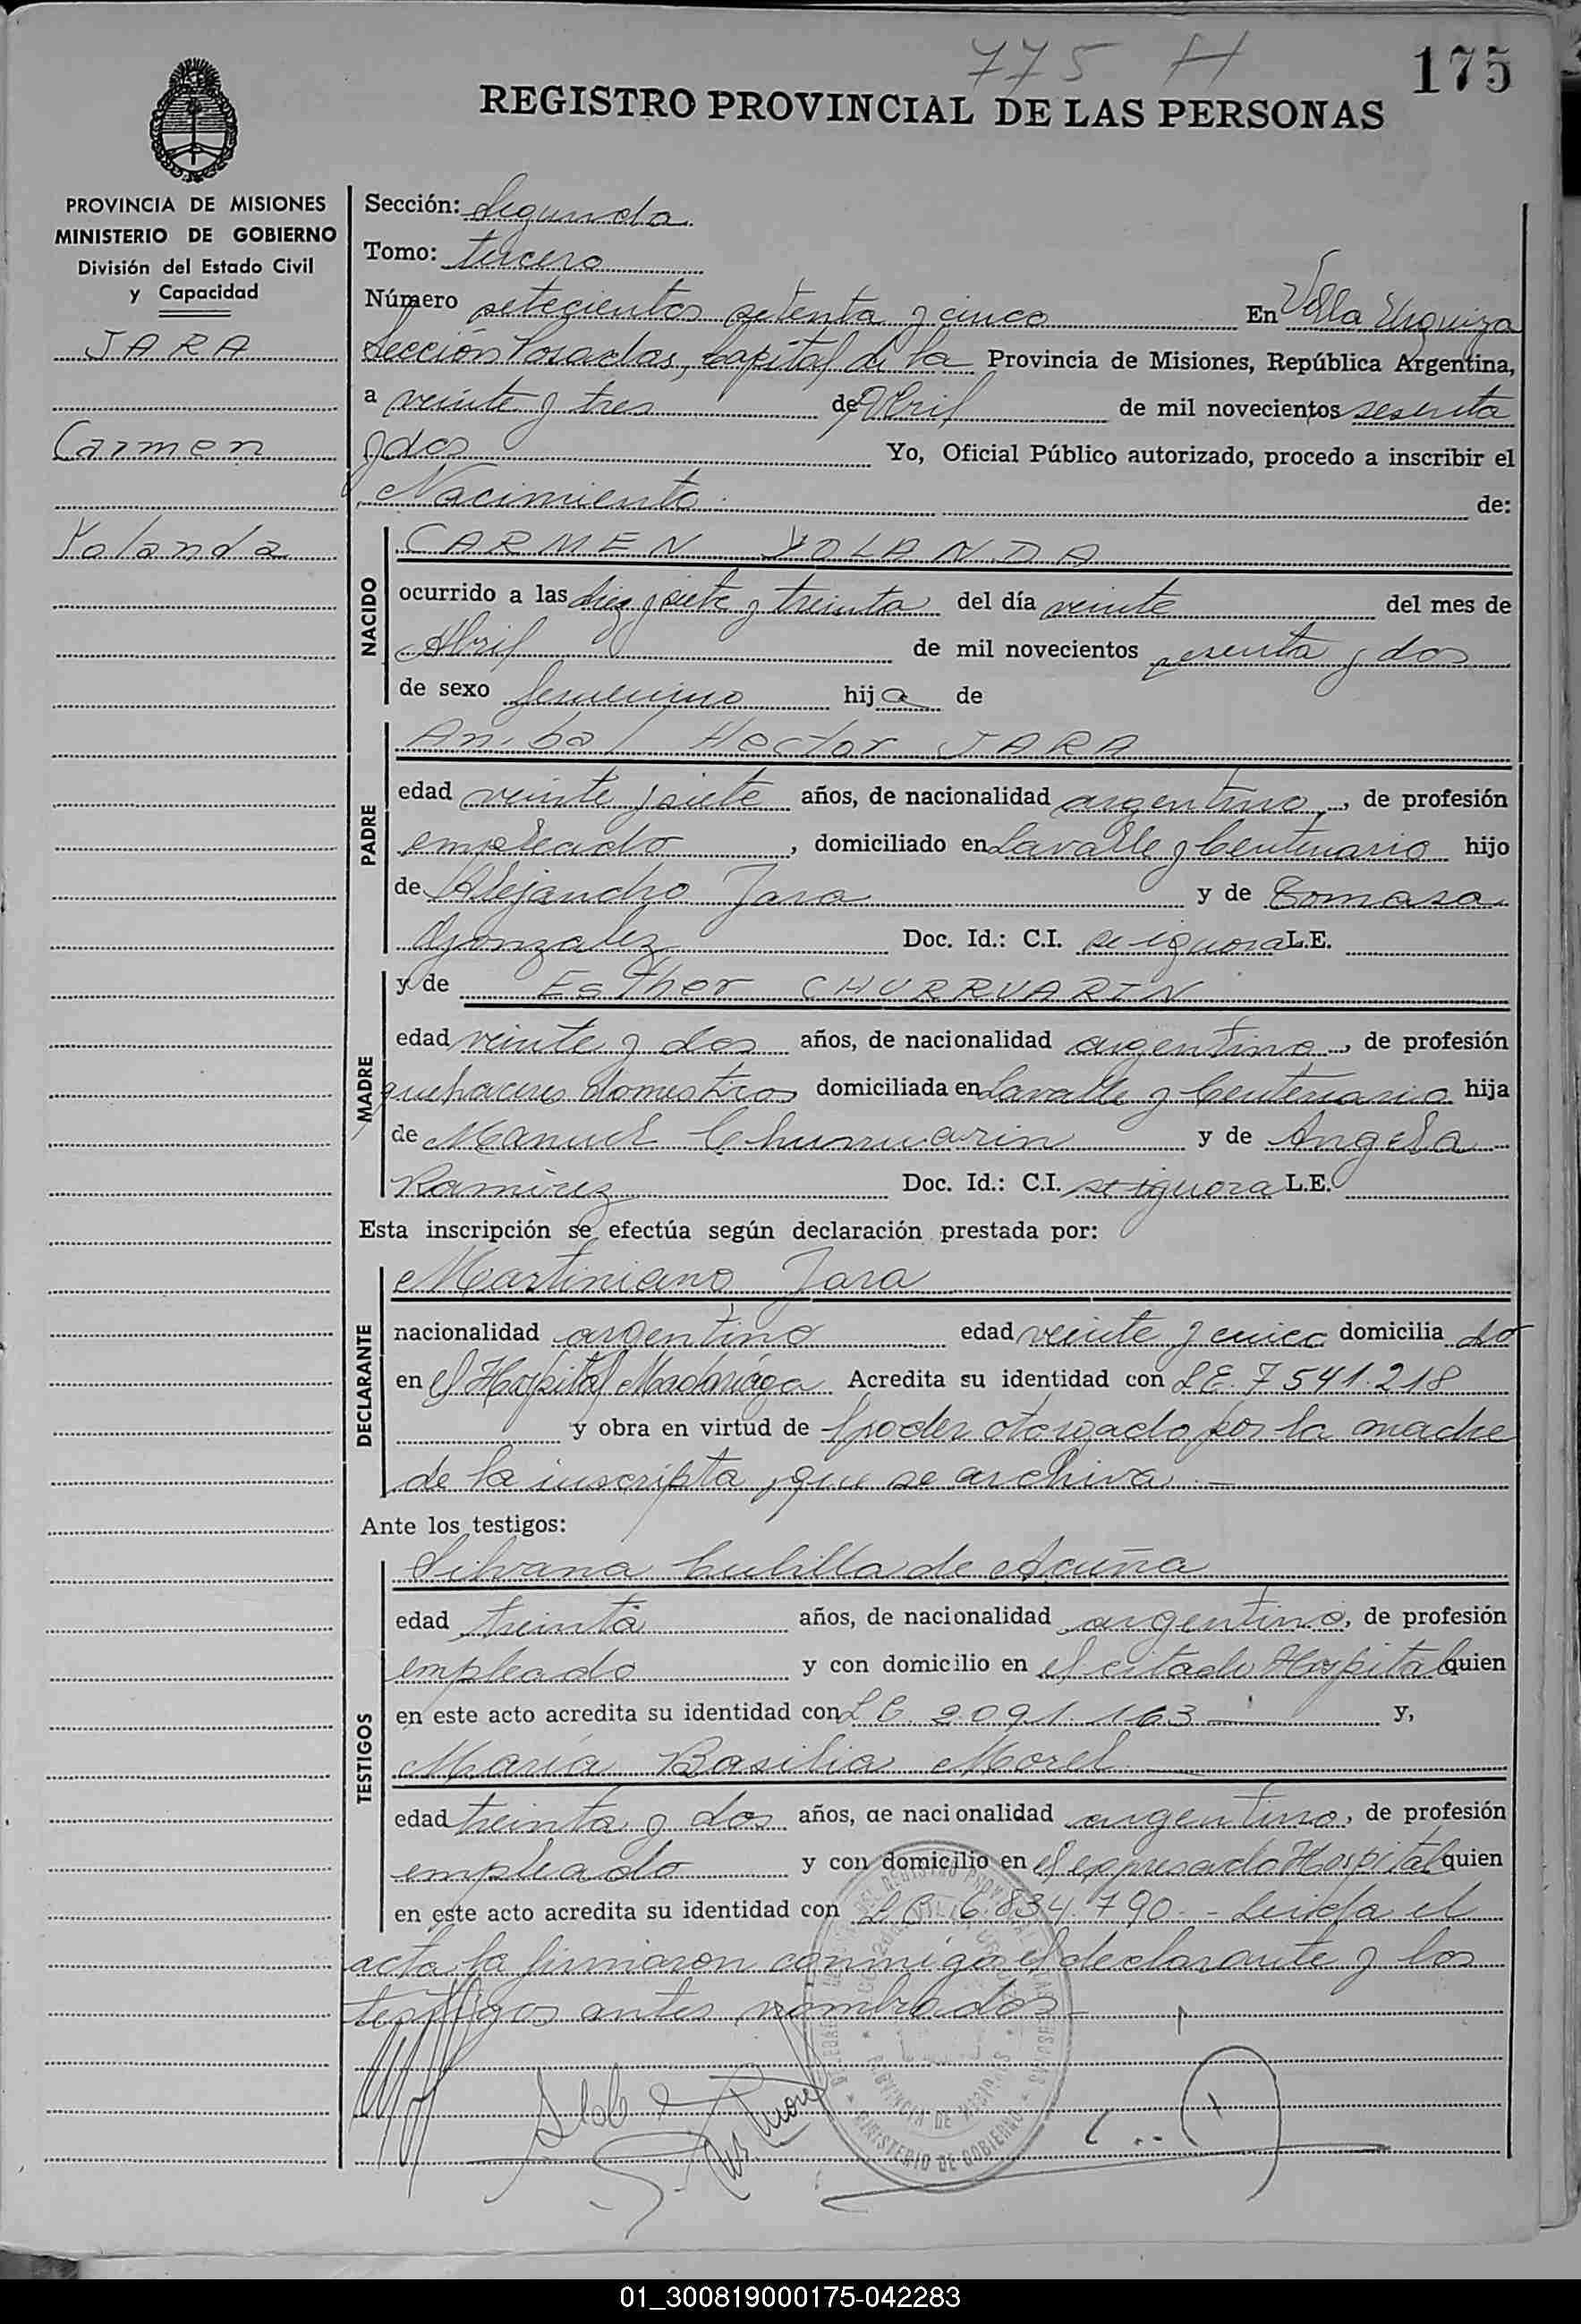 775 H
175
REGISTRO PROVINCIAL DE LAS PERSONAS
PROVINCIA DE MISIONES
MINISTERIO DE GOBIERNO
División del Estado Civil
y Capacidad
JARA
Carmen
Yolanda
Sección: Segunda
Tomo: tercero
Número setecientos setenta y cinco En Villa Urquiza
Sección Posadas, Capital de la Provincia de Misiones, República Argentina,
a veinte y tres de Abril de mil novecientos sesenta
y dos Yo, Oficial Público autorizado, procedo a inscribir el
Nacimiento de:
NACIDO
CARMEN YOLANDA
ocurrido a las diez y siete y treinta del día veinte del mes de
Abril de mil novecientos sesenta y dos
de sexo femenino hija de
PADRE
Anibal Hector JARA
edad veinte y siete años, de nacionalidad argentino, de profesión
empleado, domiciliado en Lavalle y Centenario hijo
de Alejandro Jara y de Tomasa
Gonzalez Doc. Id.: C.I. se ignora L.E.
MADRE
y de Esther CHURRUARIN
edad veinte y dos años, de nacionalidad argentina, de profesión
quehaceres domesticos domiciliada en Lavalle y Centenario hija
de Manuel Churruarin y de Angela
Ramirez Doc. Id.: C.I. se ignora L.E.
Esta inscripción se efectúa según declaración prestada por:
DECLARANTE
Martiniano Jara
nacionalidad argentino edad veinte y cinco domicilia do
en el Hospital Madariaga Acredita su identidad con L.E. 7541.218
y obra en virtud de poder otorgado por la madre
de la inscripta, que se archiva.-
Ante los testigos:
TESTIGOS
Silvana Cubilla de Acuña
edad treinta años, de nacionalidad argentina, de profesión
empleado y con domicilio en el citado Hospital quien
en este acto acredita su identidad con L C. 2091.163 y,
María Basilia Morel
edad treinta y dos años, de nacionalidad argentina, de profesión
empleado y con domicilio en el expresado Hospital quien
en este acto acredita su identidad con L C. 6.834.790.- Leida el
acta la firmaron conmigo el declarante y los
testigos antes nombrados-
PROVINCIA DE MISIONES
MINISTERIO DE GOBIERNO
01_300819000175-042283